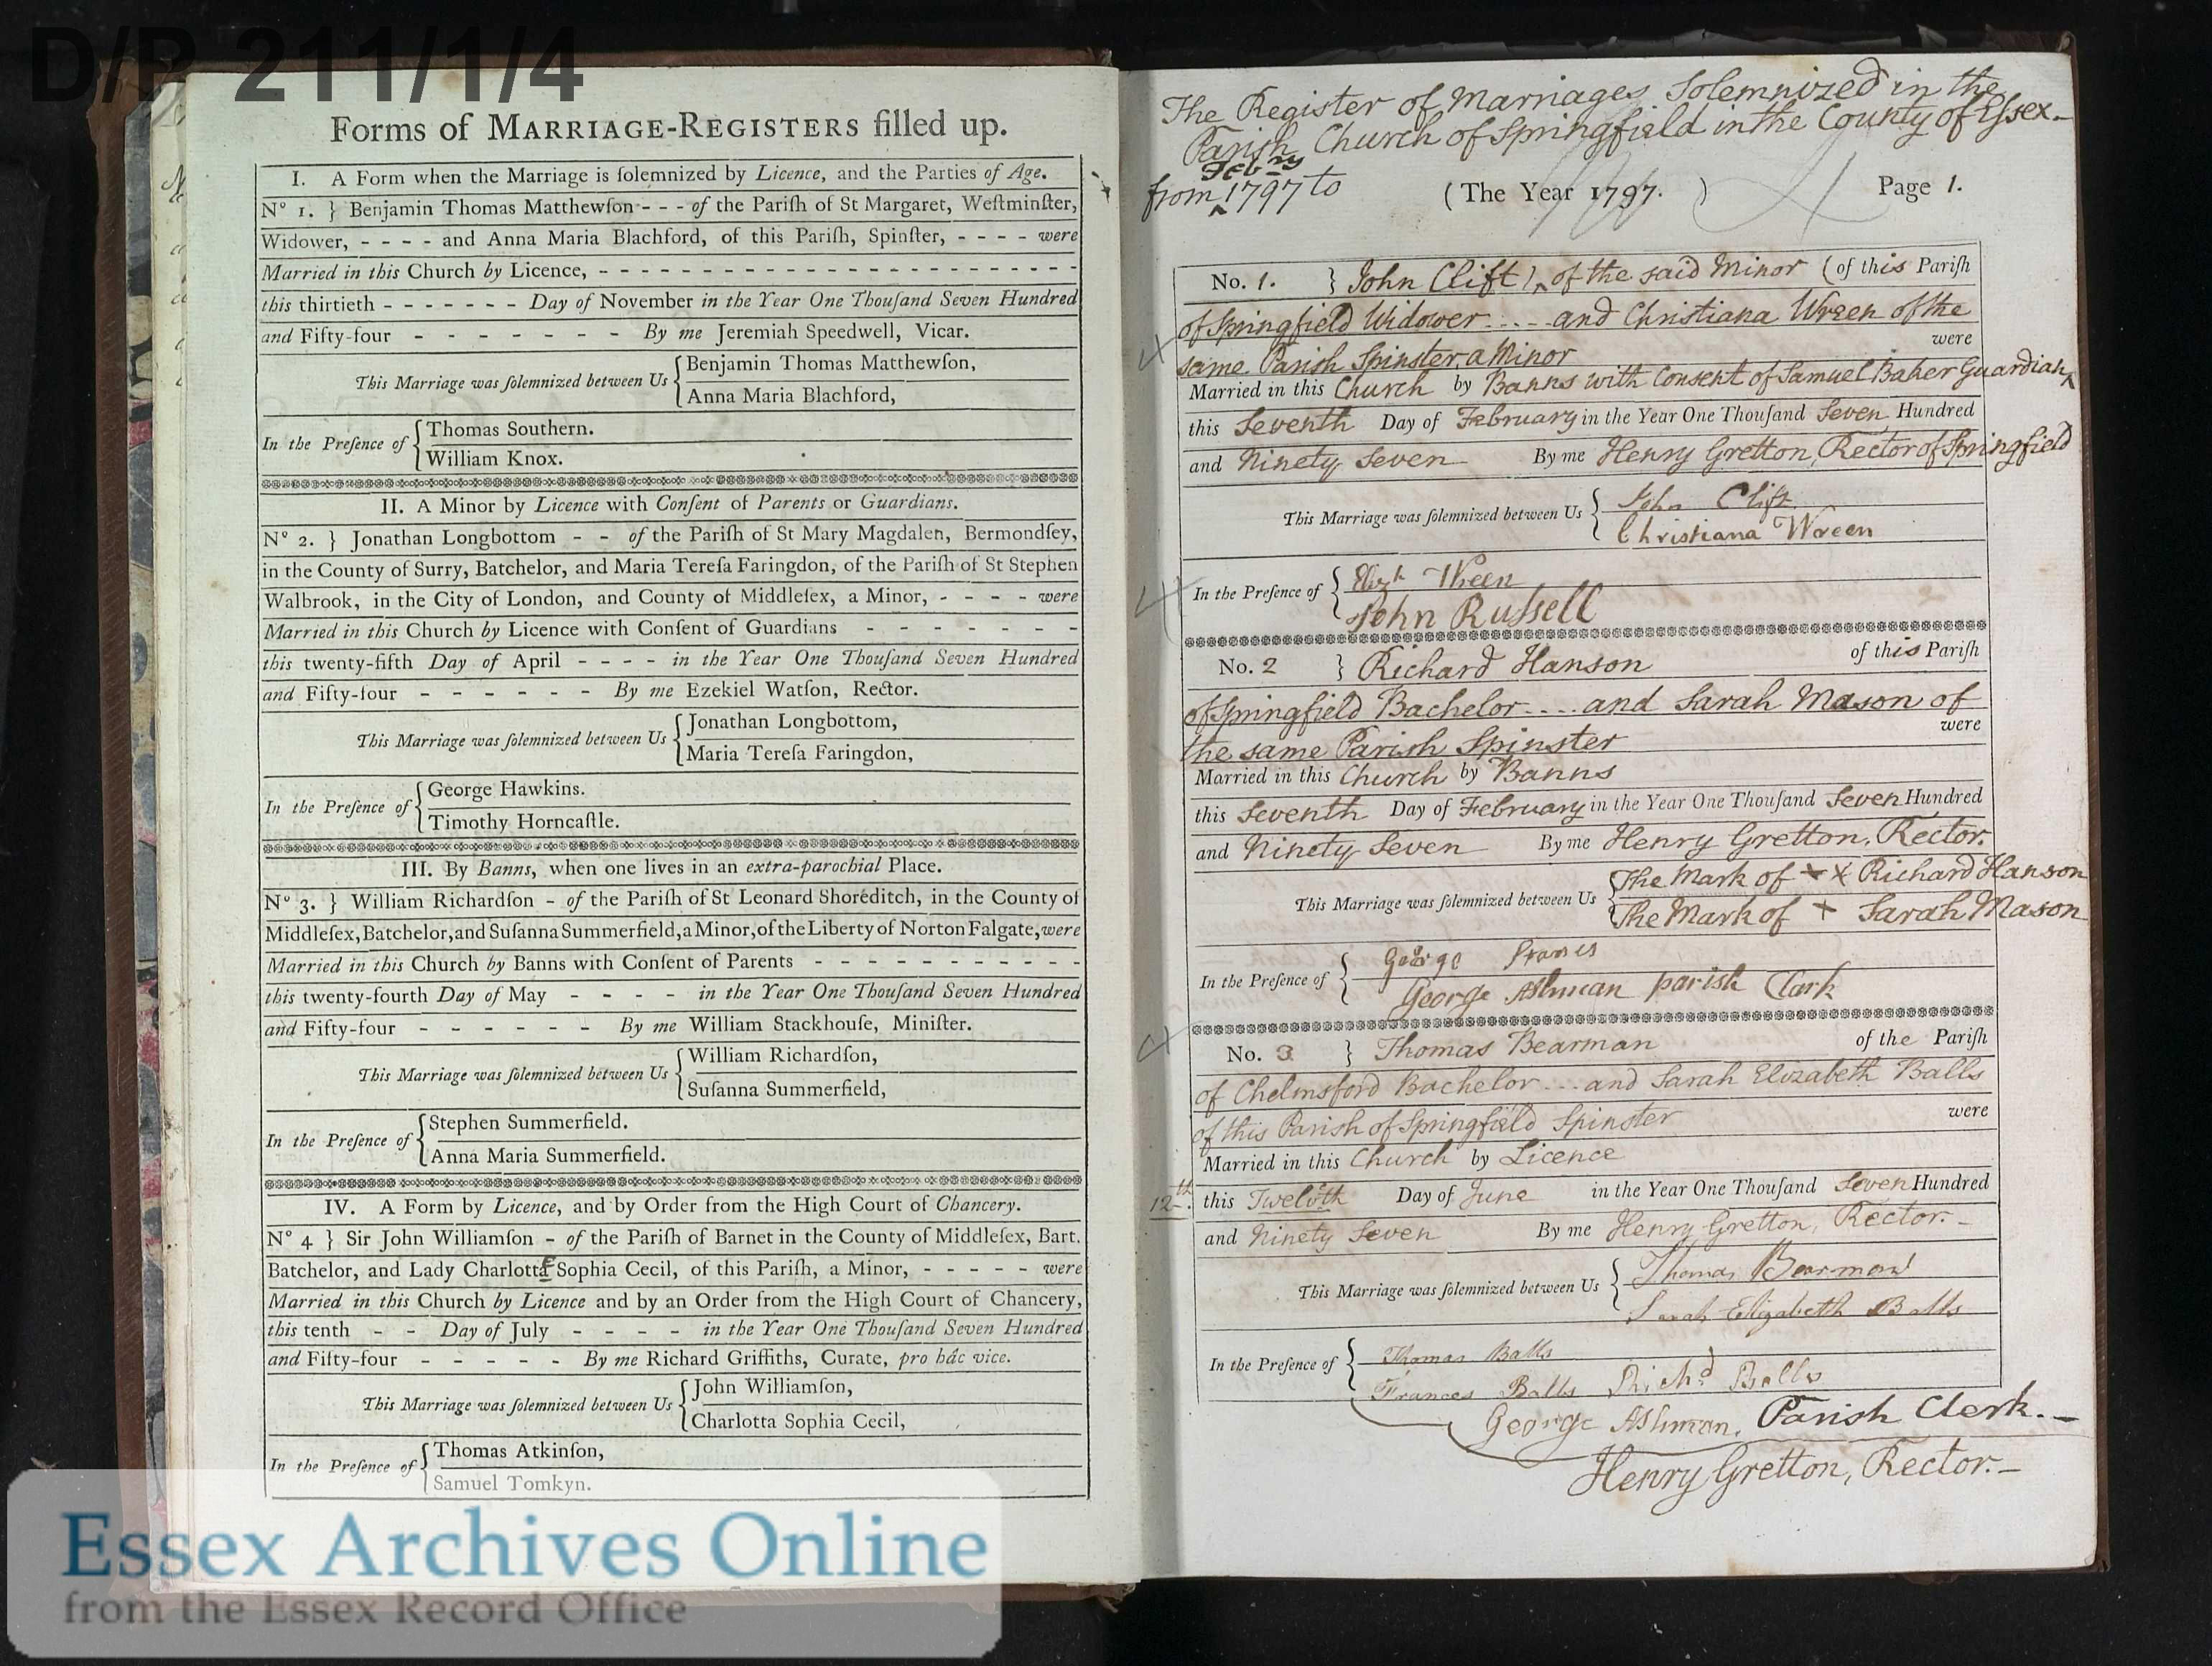 D/P 211/1/4
Forms of MARRIAGE-REGISTERS filled up.
I. A Form when the Marriage is ſolemnized by Licence, and the Parties of Age.
Nº 1. } Benjamin Thomas Matthewſon - - - of the Pariſh of St Margaret, Weſtminſter,
Widower, - - - - and Anna Maria Blachford, of this Pariſh, Spinſter, - - - - were
Married in this Church by Licence, - - - - - - - - - - - - - - - - - - - - - - - -
this thirtieth - - - - - - - Day of November in the Year One Thouſand Seven Hundred
and Fifty-four - - - - - - - By me Jeremiah Speedwell, Vicar.
This Marriage was ſolemnized between Us { Benjamin Thomas Matthewſon,
Anna Maria Blachford,
In the Preſence of { Thomas Southern.
William Knox.
II. A Minor by Licence with Conſent of Parents or Guardians.
Nº 2. } Jonathan Longbottom - - of the Pariſh of St Mary Magdalen, Bermondſey,
in the County of Surry, Batchelor, and Maria Tereſa Faringdon, of the Pariſh of St Stephen
Walbrook, in the City of London, and County of Middleſex, a Minor, - - - - were
Married in this Church by Licence with Conſent of Guardians - - - - - - -
this twenty-fifth Day of April - - - - in the Year One Thouſand Seven Hundred
and Fifty-four - - - - - - By me Ezekiel Watſon, Rector.
This Marriage was ſolemnized between Us { Jonathan Longbottom,
Maria Tereſa Faringdon,
In the Preſence of { George Hawkins.
Timothy Horncaſtle.
III. By Banns, when one lives in an extra-parochial Place.
Nº 3. } William Richardſon - of the Pariſh of St Leonard Shoreditch, in the County of
Middleſex, Batchelor, and Suſanna Summerfield, a Minor, of the Liberty of Norton Falgate, were
Married in this Church by Banns with Conſent of Parents - - - - - - - - - - -
this twenty-fourth Day of May - - - - in the Year One Thouſand Seven Hundred
and Fifty-four - - - - - - By me William Stackhouſe, Miniſter.
This Marriage was ſolemnized between Us { William Richardſon,
Suſanna Summerfield,
In the Preſence of { Stephen Summerfield.
Anna Maria Summerfield.
IV. A Form by Licence, and by Order from the High Court of Chancery.
Nº 4 } Sir John Williamſon - of the Pariſh of Barnet in the County of Middleſex, Bart.
Batchelor, and Lady Charlotte Sophia Cecil, of this Pariſh, a Minor, - - - - - were
Married in this Church by Licence and by an Order from the High Court of Chancery,
this tenth - - Day of July - - - - in the Year One Thouſand Seven Hundred
and Fifty-four - - - - - By me Richard Griffiths, Curate, pro hâc vice.
This Marriage was ſolemnized between Us { John Williamſon,
Charlotta Sophia Cecil,
In the Preſence of { Thomas Atkinſon,
Samuel Tomkyn.
Essex Archives Online
from the Essex Record Office
The Register of Marriages Solemnized in the
Parish Church of Springfield in the County of Essex
Febry
from 1797 to
(The Year 1797. ) Page 1.
No. 1. } John Clift ) of the said Minor (of this Pariſh
of Springfield Widower .... and Christiana Wreen of the
were
same Parish Spinster, a Minor
Married in this Church by Banns with Consent of Samuel Baker Guardian
this Seventh Day of February in the Year One Thouſand Seven Hundred
and Ninety Seven By me Henry Gretton, Rector of Springfield
This Marriage was ſolemnized between Us { John Clift
Christiana Wreen
In the Preſence of { Elizh Wreen
John Russell
No. 2 } Richard Hanson of this Pariſh
of Springfield Bachelor .... and Sarah Mason of
were
the same Parish Spinster
Married in this Church by Banns
this Seventh Day of February in the Year One Thouſand Seven Hundred
and Ninety Seven By me Henry Gretton, Rector.
This Marriage was ſolemnized between Us { The Mark of + X Richard Hanson
The Mark of + Sarah Mason
In the Preſence of { George
George Ashman parish Clark
No. 3 } Thomas Bearman of the Pariſh
of Chelmsford Bachelor ... and Sarah Elizabeth Balls
were
of this Parish of Springfield Spinster
Married in this Church by Licence
12th. this Twelvth Day of June in the Year One Thouſand Seven Hundred
and Ninety Seven By me Henry Gretton, Rector. -
This Marriage was ſolemnized between Us { Thomas Bearman
Sarah Elizabeth Balls
In the Preſence of { Thomas Balls
Frances Balls Richd Balls
George Ashman, Parish Clerk. -
Henry Gretton, Rector. -